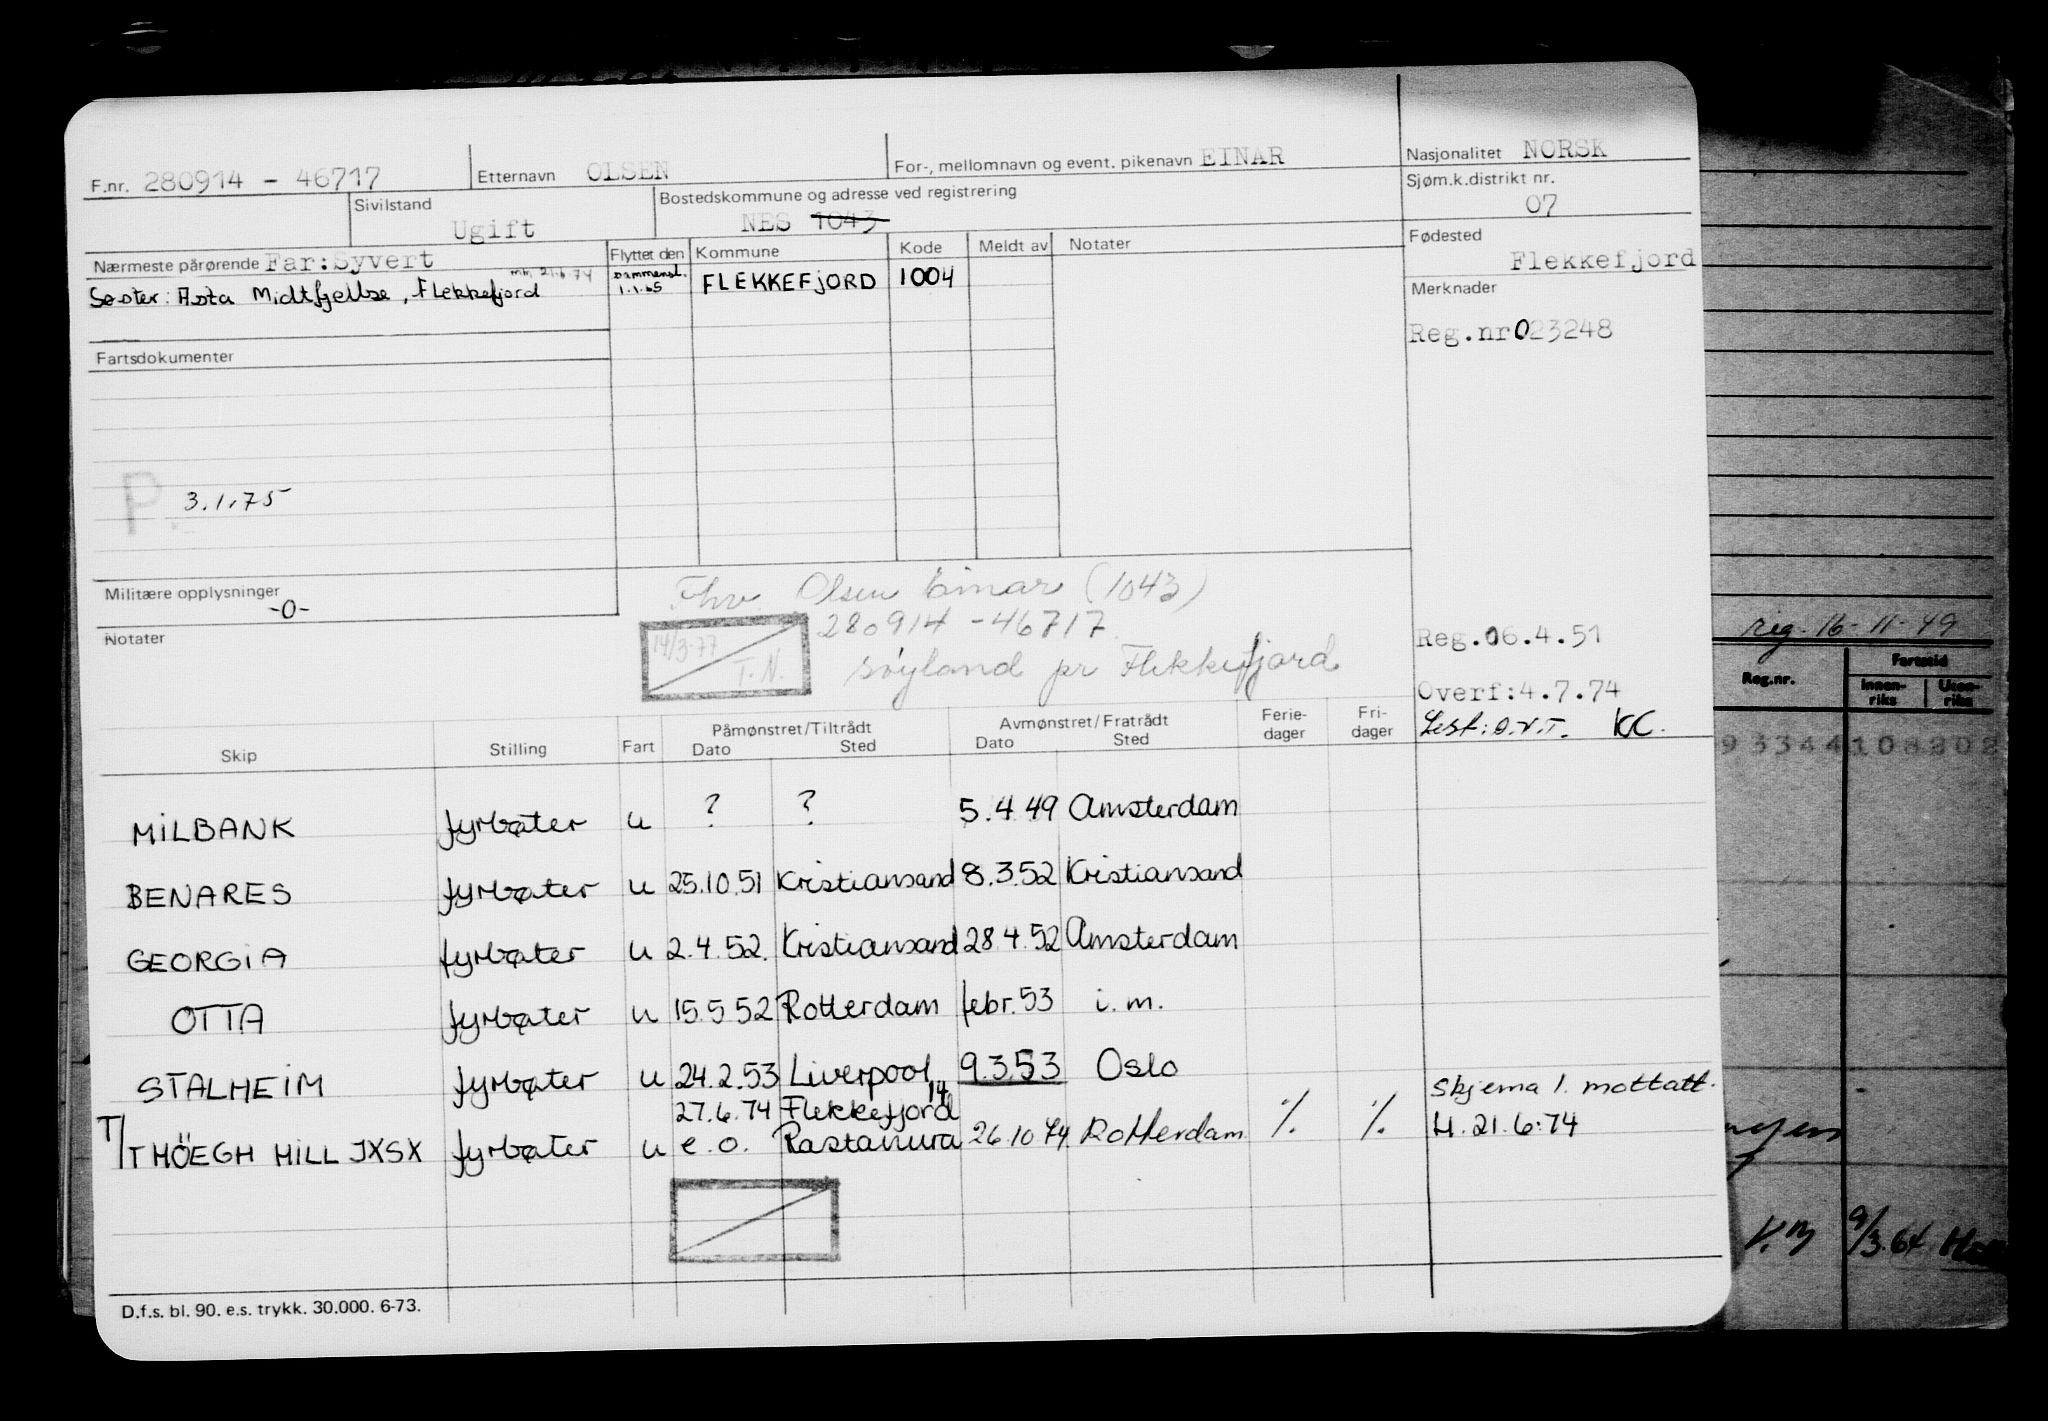 F.nr. 280914 - 46717 Etternavn OLSEN For-, mellomnavn og event. pikenavn EINAR Nasjonalitet NORSK
Sivilstand Ugift Bostedskommune og adresse ved registrering NES 1043 Sjøm.k.distrikt nr. 07
Nærmeste pårørende Far:Syvert Flyttet den Kommune Kode Meldt av Notater Fødested Flekkefjord
Søster: Asta Midtfjellse, Flekkefjord 21.6.74 sammensl. 1.1.65 FLEKKEFJORD 1004
Merknader
Reg.nr 023248
Fartsdokumenter
P. 3.1.75
Militære opplysninger -0-
Fhv. Olsen Einar (1043)
280914 - 46717
søyland pr Flekkefjord
14/3-77 T.N.
Notater
Reg. 06.4.51
Overf: 4.7.74
Lest: O.V.T. KC.
Skip Stilling Fart Påmønstret/Tiltrådt Dato Sted Avmønstret/Fratrådt Dato Sted Ferie-dager Fri-dager
MILBANK fyrbøter u ? ? 5.4.49 Amsterdam
BENARES fyrbøter u 25.10.51 Kristiansand 8.3.52 Kristiansand
GEORGIA fyrbøter u 2.4.52. Kristiansand 28.4.52 Amsterdam
OTTA fyrbøter u 15.5.52 Rotterdam febr.53 i.m.
STALHEIM fyrbøter u 24.2.53 Liverpool 9.3.53 Oslo
27.6.74 Flekkefjord 14 Skjema 1. mottatt.
T/T HÖEGH HILL JXSX fyrbøter u e.o. Rastanura 26.10.74 Rotterdam % % H. 21.6.74
D.f.s. bl. 90. e.s. trykk. 30.000. 6-73.
reg. 16-11-49
Reg.nr. Fartstid
Innen-riks Uten-riks
93344108202
9/3.64